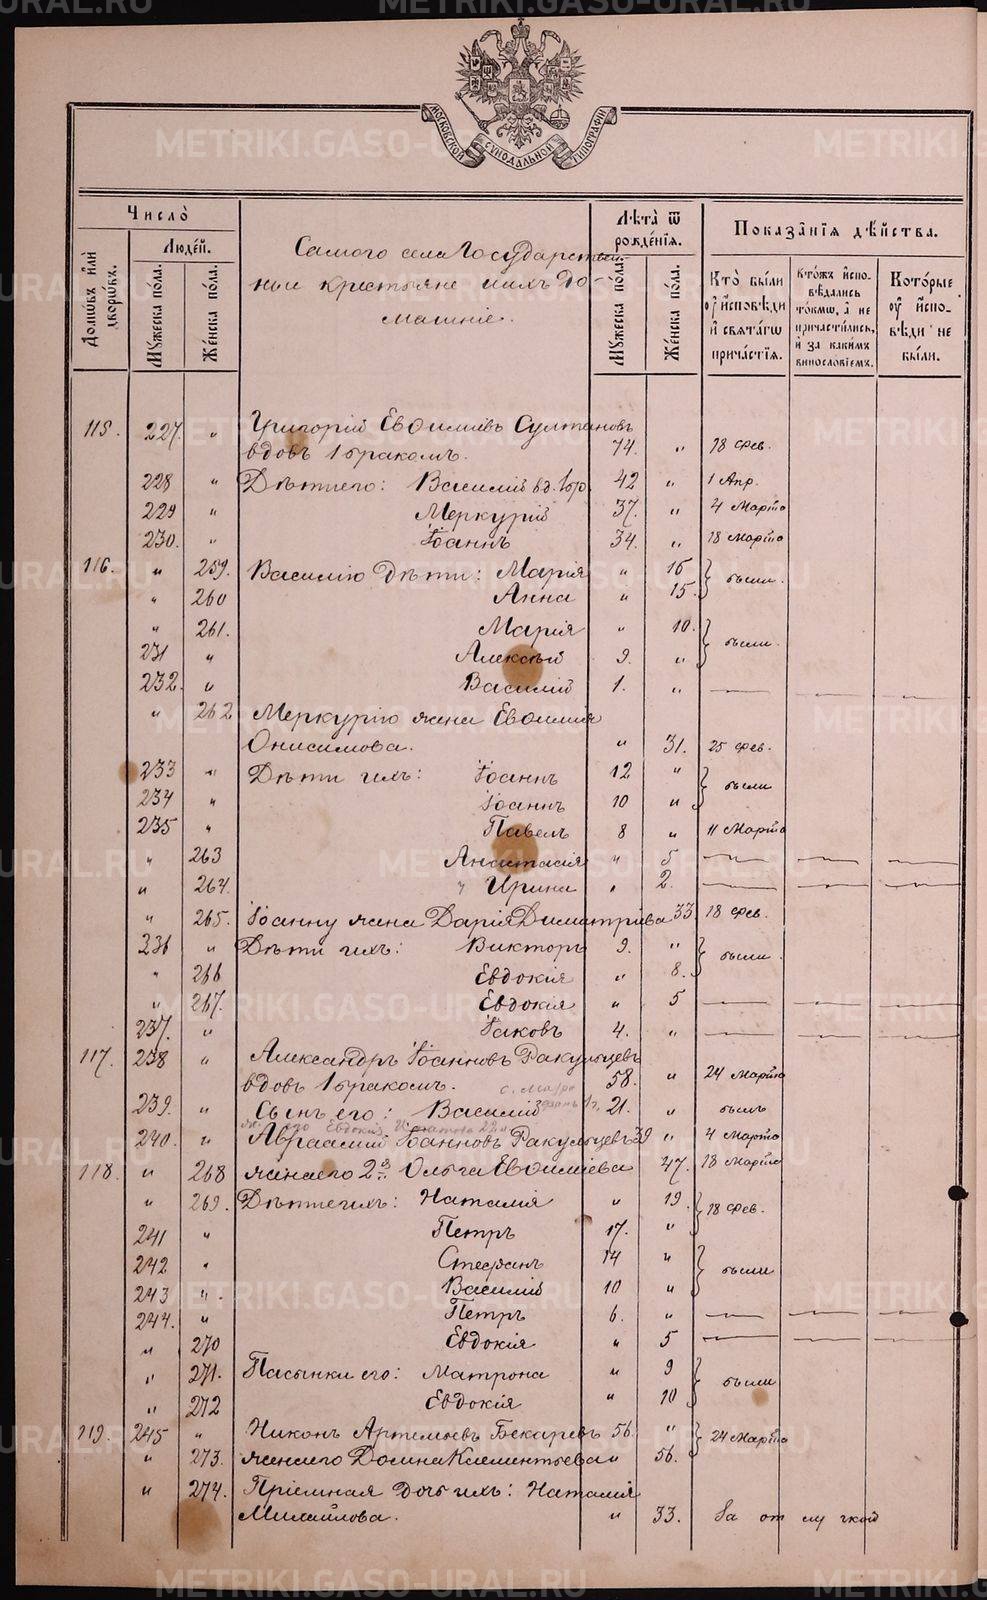 МОСКОВСКОЙ СѴНОДАЛЬНОЙ ТИПОГРАФІИ
Число̀
Домѡвъ илѝ дворѡвъ.
Людей.
Мꙋжеска пола.
Женска пола.
Самого села Государствен
ные крестьяне и ихъ до-
машніе.
Лѣта ѿ рожденія.
Мꙋжеска пола.
Женска пола.
Показанія дѣйства.
Кто были ᲂу исповѣди и святагѡ причастія.
Ктожъ исповѣдались токмѡ, а не причастились, и за какимъ винословіемъ.
Которые ᲂу исповѣди не были.
115. 227. " Григорій Евѳиміевъ Султановъ
вдовъ 1 бракомъ. 74. " 18 Фев.
228 " Дѣти его: Василій вд. 1 бр. 42 " 1 Апр.
229 " Меркурій 37. " 4 Марта
230. " Іоаннъ 34. " 18 Марта
116. " 259. Василію дѣти: Марія " 16
" 260 Анна " 15. были
" 261. Марія " 10.
231 " Алексѣй 9. " были
232. " Василій 1. " — — —
" 262 Меркурію жена Евѳимія
Онисимова. " 31. 25 Фев.
233 " Дѣти ихъ: Іоаннъ 12 "
234 " Іоаннъ 10 " были
235 " Павелъ 8 " 11 Марта
" 263 Анастасія " 5 — — —
" 264. Ирина " 2. — — —
" 265. Іоанну жена Дарія Димитріева 33 18 Фев.
236 " Дѣти ихъ: Викторъ 9. "
" 266 Евдокія " 8. были
" 267. Евдокія " 5 — — —
237. " Іаковъ 4. " — — —
117. 238 " Александръ Іоанновъ Ракульцевъ
вдовъ 1 бракомъ. 58. " 24 Марта
239. " Сынъ его: Василій 21. " былъ
240. " Авраамій Іоанновъ Ракульцевъ 39 " 4 Марта
118. " 268 жена его 2я Ольга Евѳиміева 47. 18 Марта
" 269. Дѣти ихъ: Наталія " 19
241 " Петръ 17. " 18 Фев.
242 " Стефанъ 14 "
243 " Василій 10 " были
244. " Петръ 6. " — — —
" 270 Евдокія " 5 — — —
" 271. Пасынки его: Матрона " 9
" 272 Евдокія " 10 были
119. 245 " Никонъ Артемьевъ Бекаревъ 56. "
" 273. жена его Домна Климентьева " 56. 24 Марта
" 274. Пріемная дочь ихъ: Наталія
Михайлова. " 33. За отлучкой
METRIKI.GASO-URAL.RU